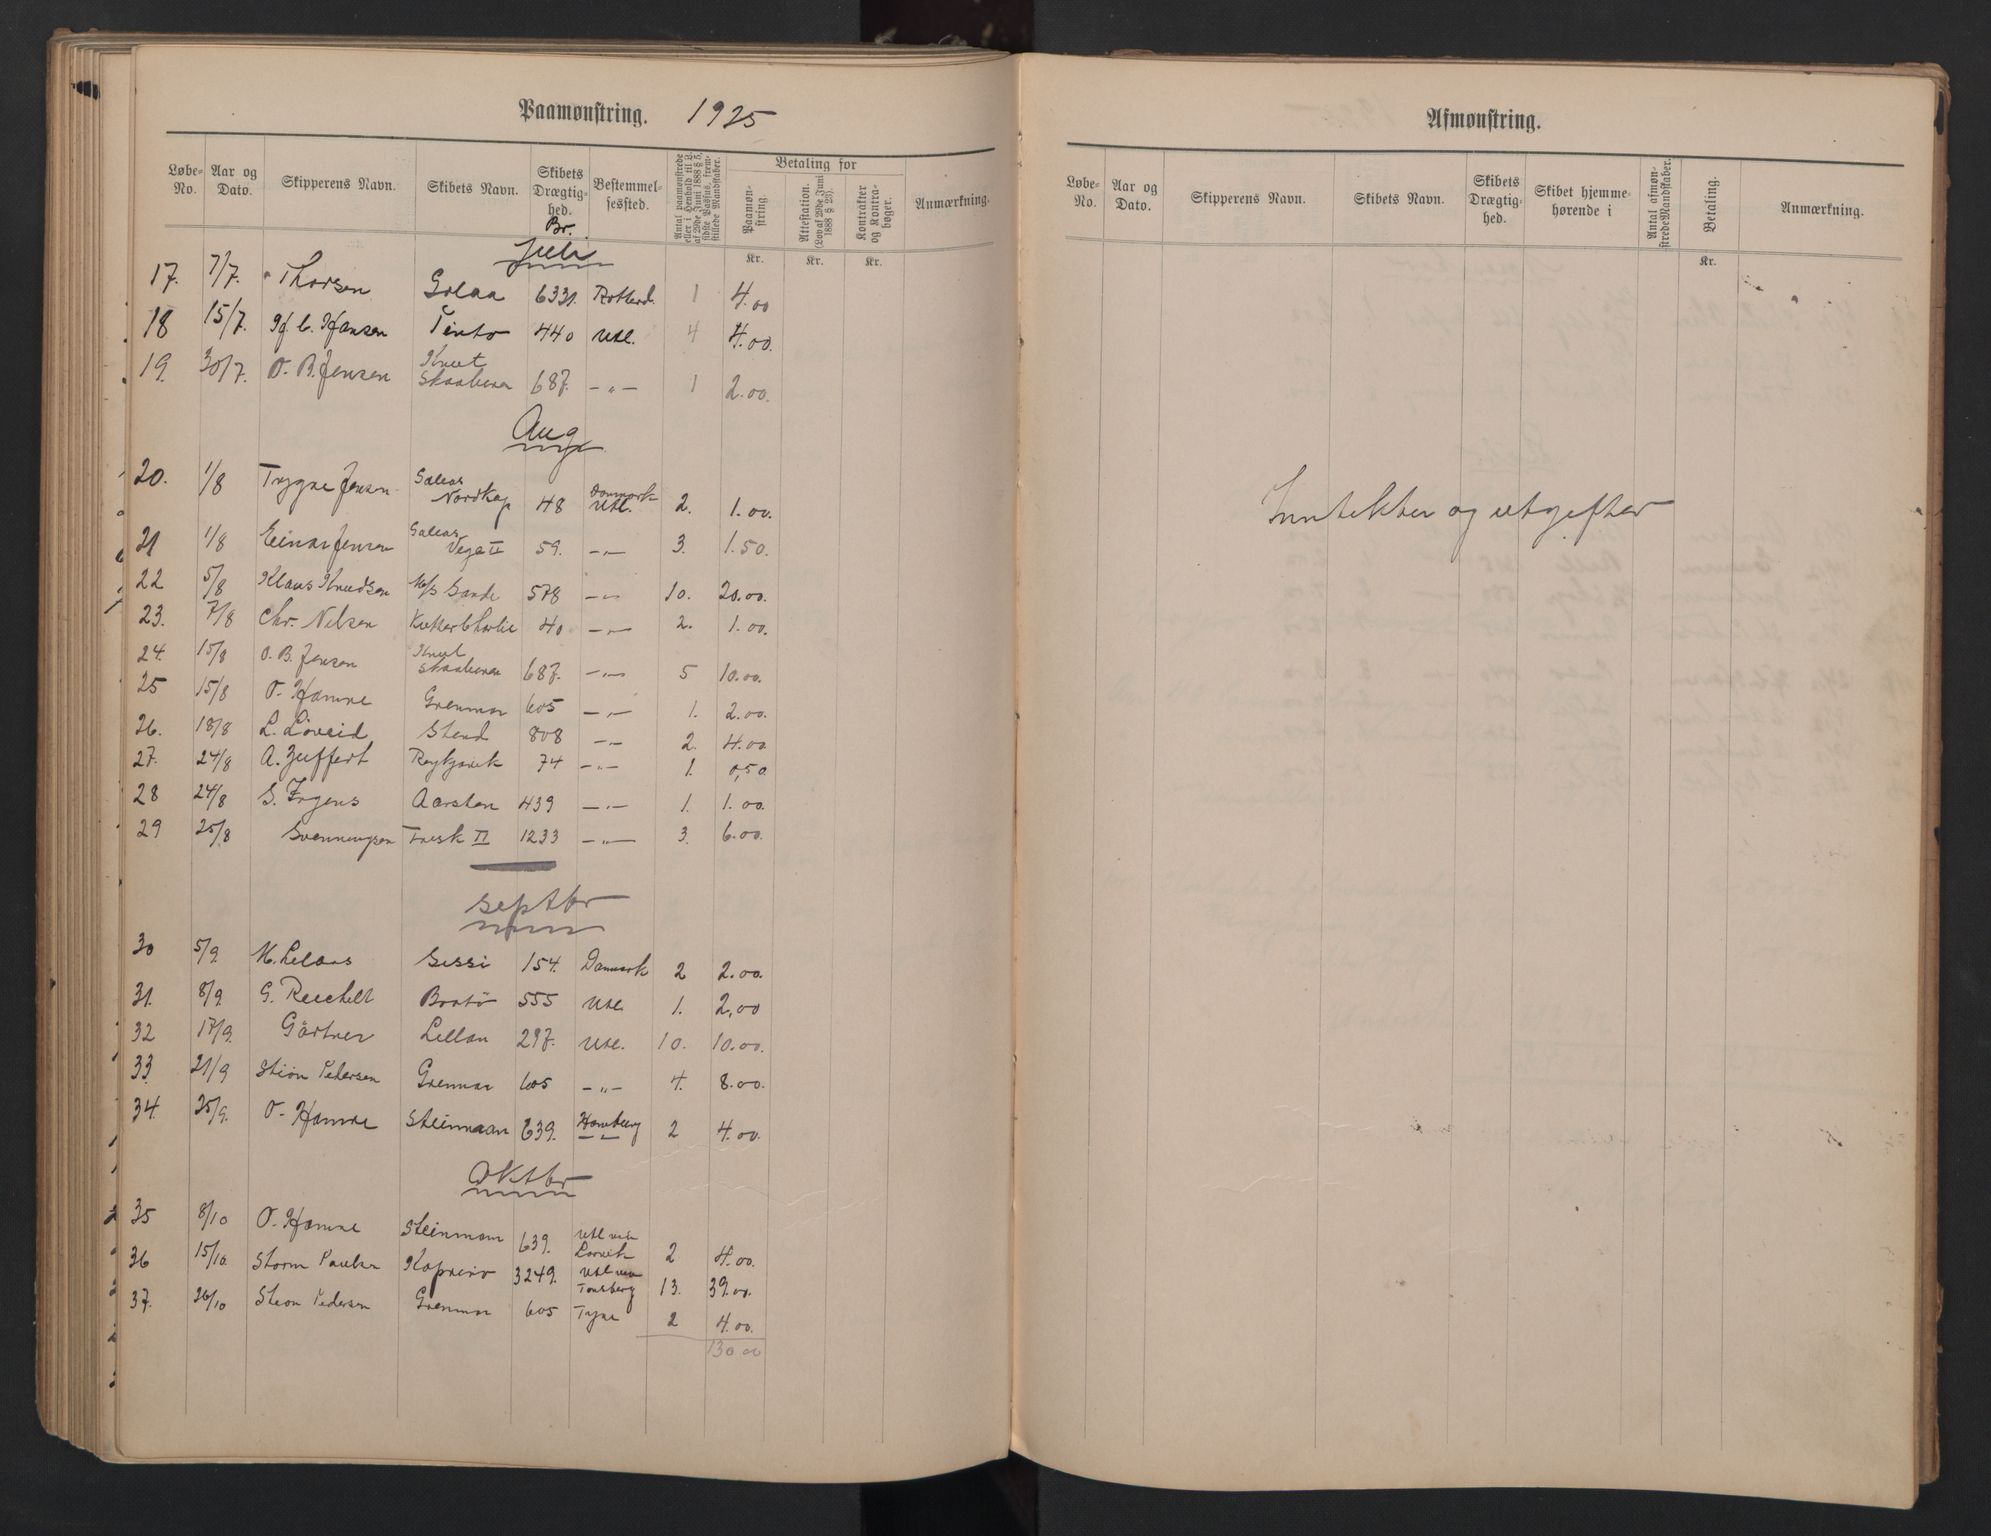 Paamønstring. 1925
Løbe-No. Aar og Dato. Skipperens Navn. Skibets Navn. Skibets Drægtighed. Bestemmelsessted. Antal paamønstrede eller i Henhold til L. af 29de Juni 1888 § 5, sidste Passus, fremstillede Mandskaber. Betaling for Paamønstring. Attestation. (Lov af 29de Juni 1888 § 23). Kontrakter og Kontrabøger. Anmærkning.
Br.
Kr. Kr. Kr.
Juli
17. 7/7. Thorsen Golaa 6331. Rotterd. 1 4.00
18 15/7. H. C. Hansen Tento 440 Utl. 4 4.00.
19. 30/7. O. B. Jensen Knut Skaaluren 687. — „ — 1 2.00.
Aug
20. 1/8 Trygve Jensen Galeas Nordkap 48 Danmark Utl. 2. 1.00.
21 1/8 Einar Jensen Galeas Vega II 59. — „ — 3. 1.50.
22 5/8 Klaus Knudsen M/s Sande 578 — „ — 10. 20.00.
23. 7/8 Chr. Nilsen Kutter Charlie 40 — „ — 2. 1.00.
24. 15/8 O. B. Jensen Knut Skaaluren 687. — „ — 5 10.00.
25 15/8 O. Hamre Grenmar 605 — „ — 1. 2.00.
26. 18/8 L. Løveid Stend 808 — „ — 2. 4.00.
27. 24/8 A. Zuffert Reykjavik 74 — „ — 1. 0,50.
28 24/8 S. Irgens Aarsten 439 — „ — 1. 1.00.
29 25/8 Svenningsen Fresk II 1233 — „ — 3. 6.00.
Septbr
30 5/9. M. Lelans Sessi 154. Danmark 2 2.00.
31. 8/9. G. Reichelt Bratø 555 Utl. 1. 2,00
32 17/9. Gärtner Lellan 297. Utl. 10. 10.00.
33. 21/9 Stiøn Pedersen Grenmar 605 — „ — 4. 8.00.
34. 25/9. O. Hamre Steinmaan 639. Hamburg 2 4.00.
Oktbr
35 8/10 O. Hamre Steinmaan 639. Utl via Larvik 2 4.00.
36 15/10. Storm Paulsen Kaprino 3249. Utl via Tønsberg 13. 39.00.
37. 26/10 Stiøn Pedersen Grenmar 605 Tyne 2 4.00.
130.00
Afmønstring.
Løbe-No. Aar og Dato. Skipperens Navn. Skibets Navn. Skibets Drægtighed. Skibet hjemmehørende i Antal afmønstrede Mandskaber. Betaling. Anmærkning.
Kr.
Inntekter og utgifter